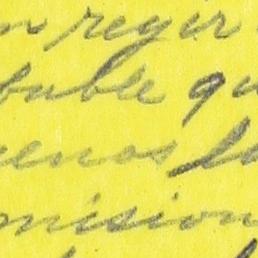 n reyer
buble qu
enos la
mision